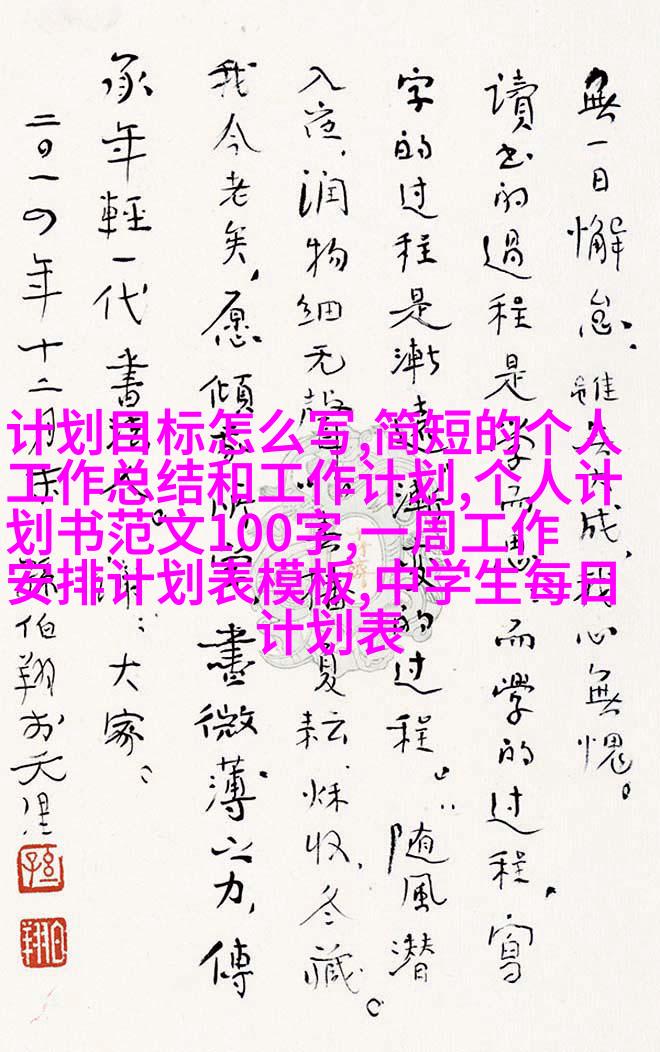 無一日懈怠,雖無成,我心無愧。
讀书的過程是学而思,而學的过程,寫
字的过程是漸漸的过程。随風潜
入夜,润物细无聲。春播夏耘,秌收,冬藏。
我今老矣,愿傾所,盡微薄之力,傳
承年輕一代書大家。
二〇一四年十二月孫伯翔於天津
计划目标怎么写,简短的个人
工作总结和工作计划,个人计
划书范文100字,一周工作
安排计划表模板,中学生每日
计划表